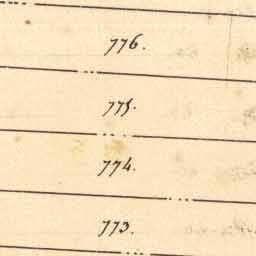 776.
775.
774.
773.